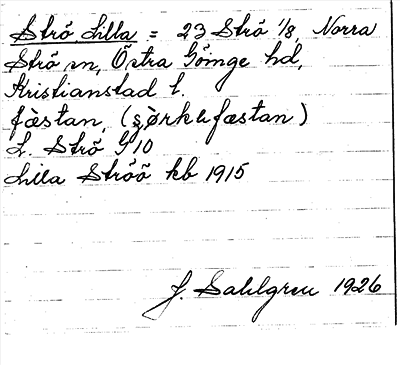 Strö, Lilla = 23 Strö 1/8, Norra
Strö sn, Östra Göinge hd,
Kristianstad l.
fæstan, (
L. Strö G10
Lilla Ströö kb 1915
J. Sahlgren 1926